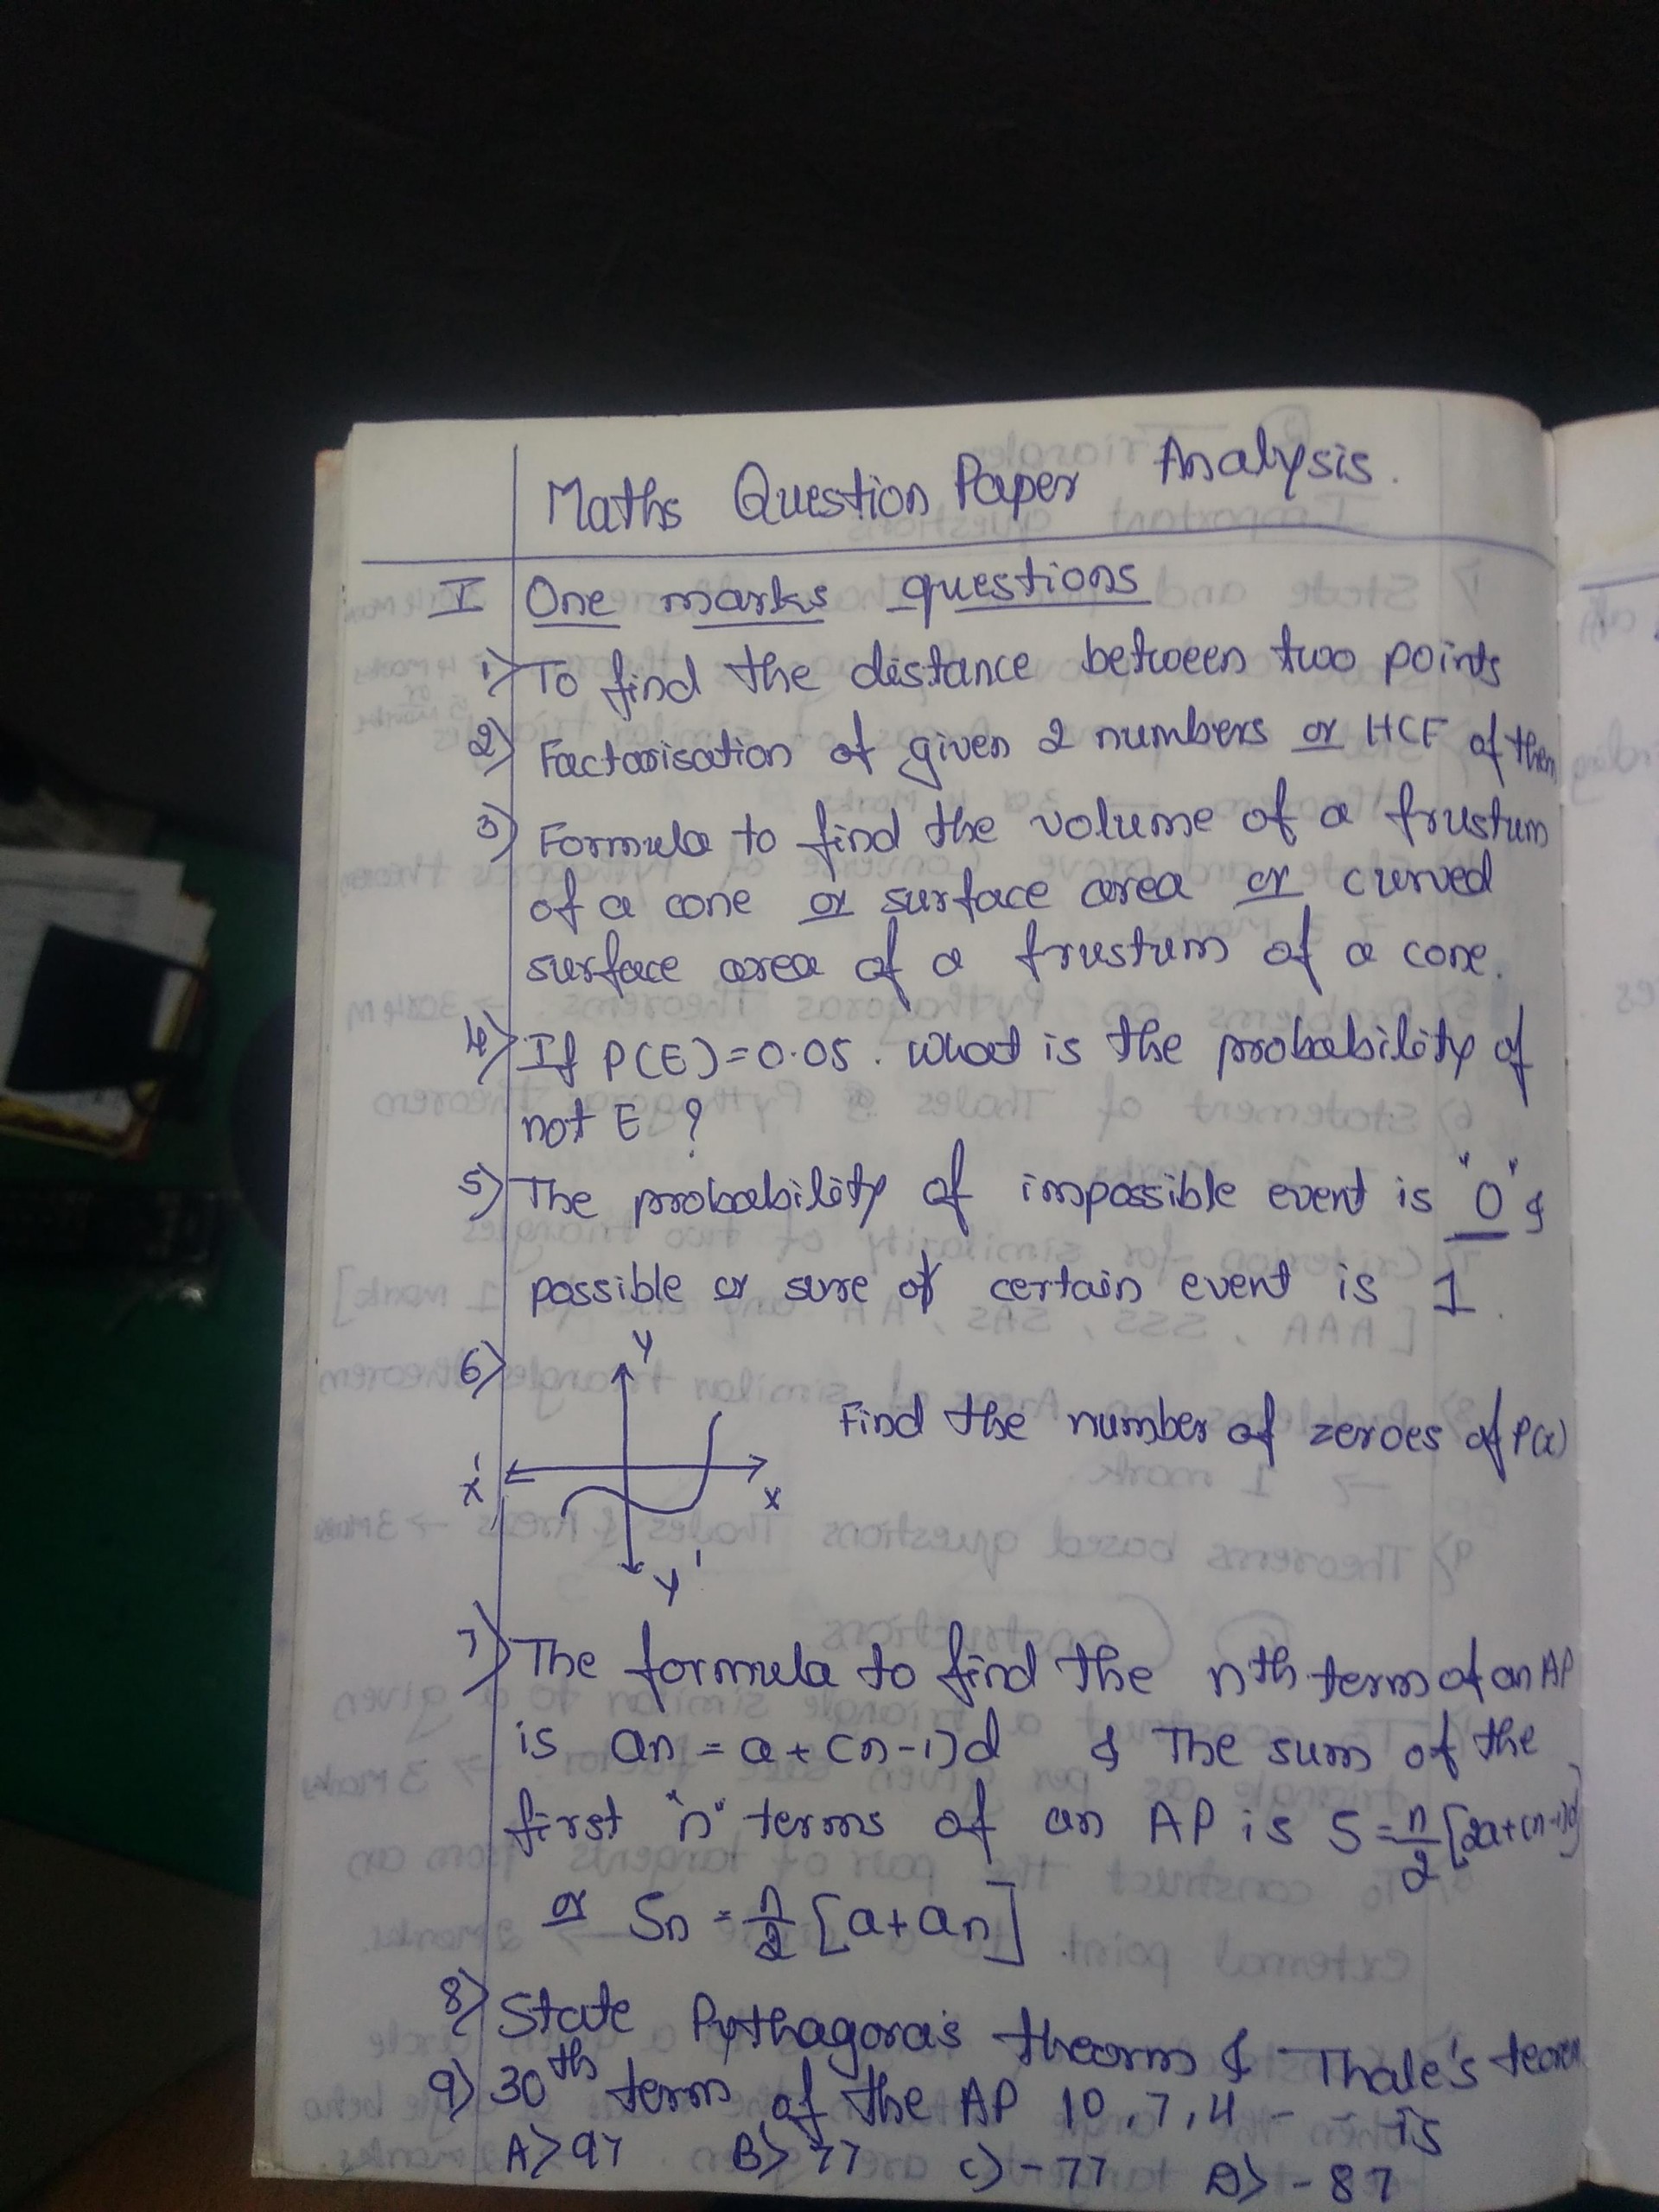 Maths Question Paper Analysis.
I One marks questions
1) To find the distance between two points
2) Factorisation of given 2 numbers or HCF of them
3) Formula to find the volume of a frustum
of a cone or surface area or curved
surface area of a frustum of a cone.
4) If P(E)=0.05. What is the probability of
not E ?
5) The probability of impossible event is "0" &
possible or sure of certain event is 1.
6) Find the number of zeroes of P(x)
Y
X' X
Y'
7) The formula to find the nth term of an AP
is an = a+(n-1)d & The sum of the
first "n" terms of an AP is S = n/2 [2a+(n-1)d]
or Sn = n/2 [a+an]
8) State Pythagora's theorm & Thale's teorem
9) 30th term of the AP 10,7,4 - - is
A> 97 B> 77 C) -77 D> -87